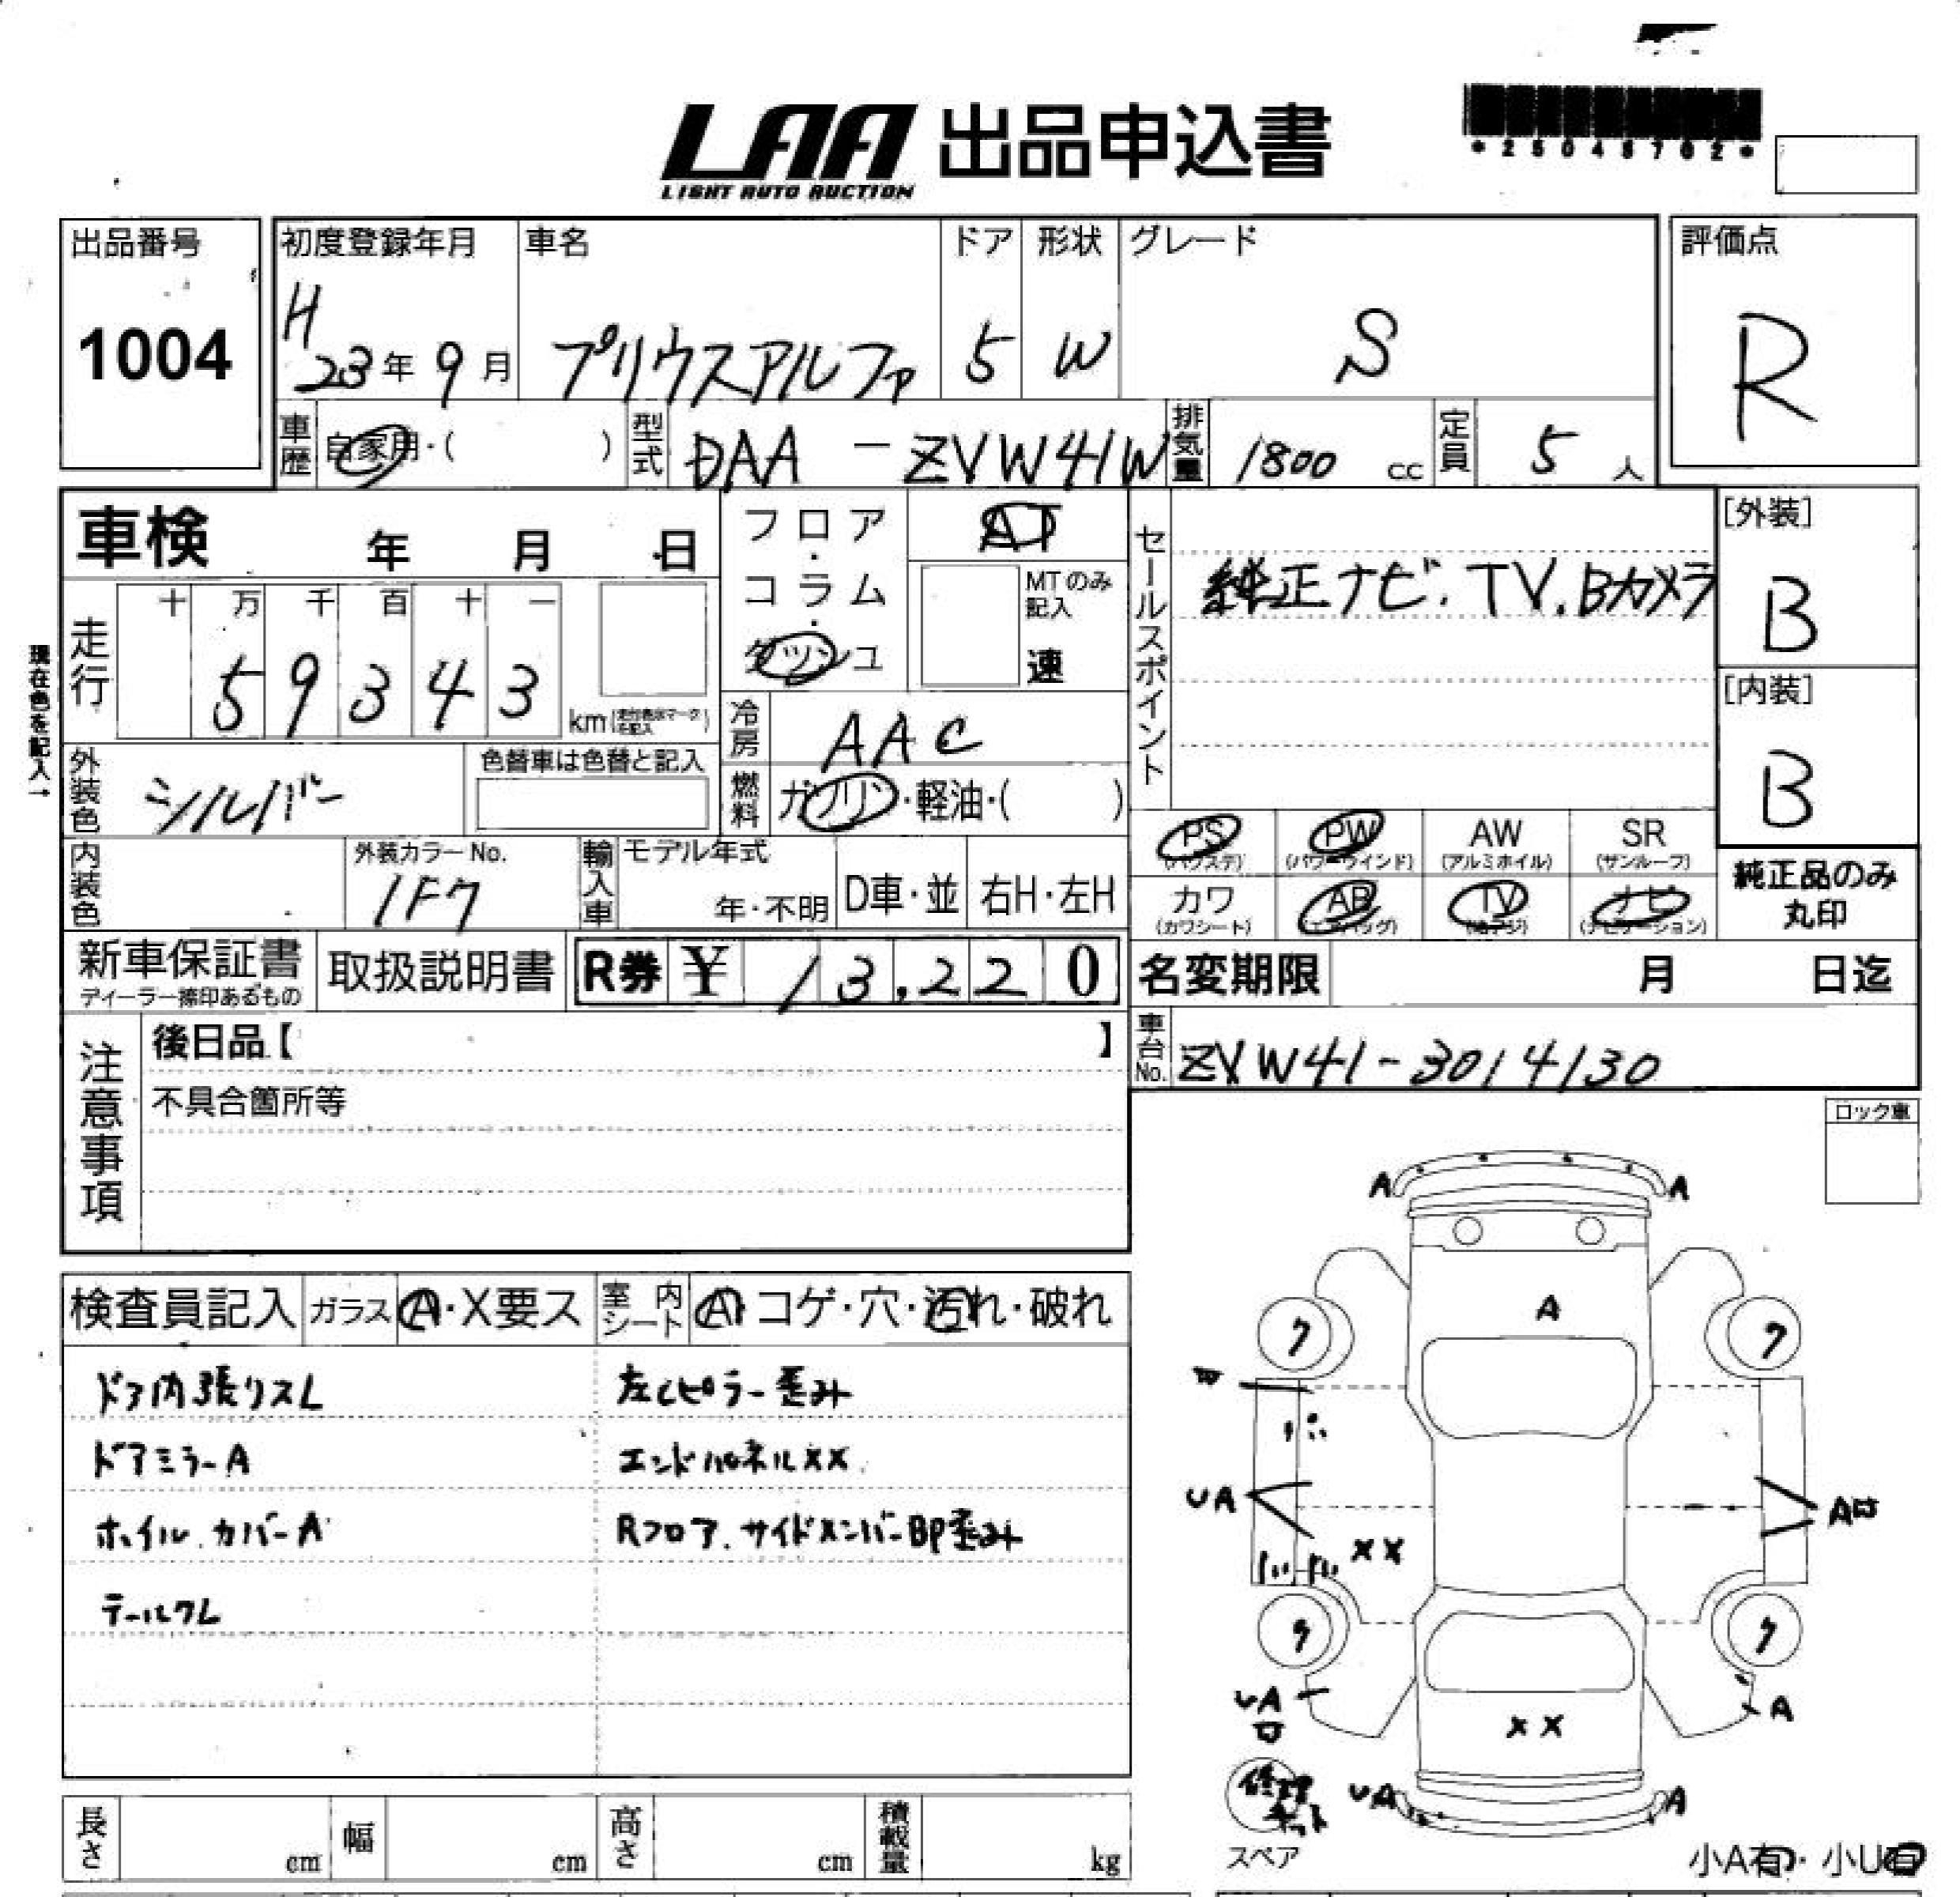 LAA 出品申込書
LIGHT AUTO AUCTION
*25045702*
出品番号
1004
初度登録年月
H
23年 9月
車名
プリウスアルファ
ドア
5
形状
W
グレード
S
評価点
R
車歴
自家用・( )
型式
DAA - ZVW41W
排気量
1800 cc
定員
5 人
車検 年 月 日
フロア・コラム・ダッシュ
AT
MTのみ記入
速
セールスポイント
純正ナビ.TV.Bカメラ
[外装]
B
[内装]
B
現在色を記入→
走行
十 万 千 百 十 一
5 9 3 4 3
km
冷房
AAC
外装色
シルバー
色替車は色替と記入
燃料
ガソリン・軽油・( )
PS
(パワステ)
PW
(パワーウインド)
AW
(アルミホイル)
SR
(サンルーフ)
カワ
(カワシート)
AB
(エアバッグ)
TV
ナビ
(ナビゲーション)
純正品のみ
丸印
内装色
外装カラーNo.
1F7
輸入車
モデル年式
年・不明
D車・並
右H・左H
新車保証書
ディーラー捺印あるもの
取扱説明書
R券 ¥ 13,220
名変期限 月 日迄
注意事項
後日品【 】
不具合箇所等
車台No.
ZVW41-3014130
ロック車
検査員記入
ガラス
A・X要ス
室内シート
A コゲ・穴・汚れ・破れ
ドア内張リスレ
左Cピラー歪み
ドアミラーA
エンドパネルXX
ホイルカバーA
Rフロア.サイドメンバーBP歪み
テールワレ
A
A
A
7
7
UA
XX
A
7
UA
A
XX
修理キット
UA
A
スペア
小A有・小U有
長さ
cm
幅
cm
高さ
cm
積載量
kg